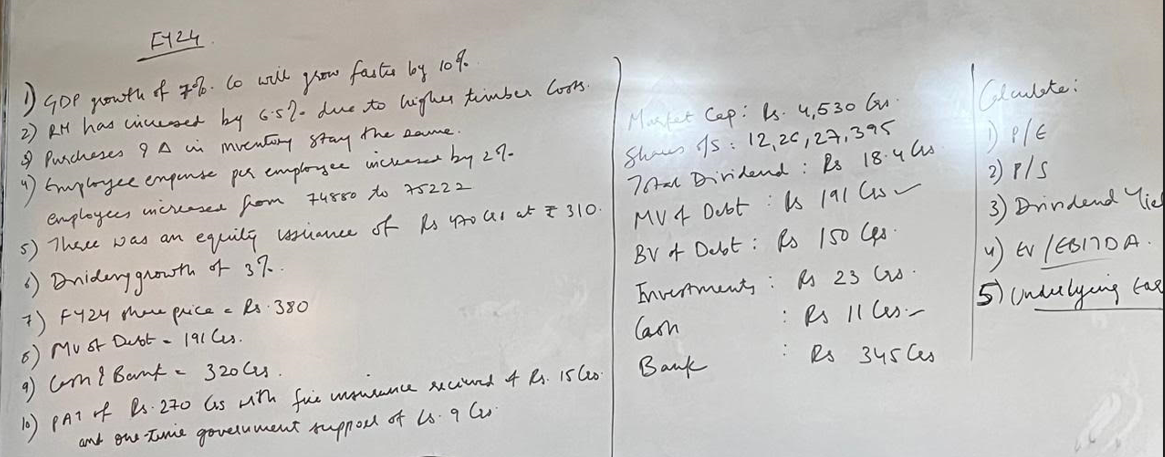 FY24
1) GDP growth of 7%. Co will grow faster by 10%
2) RM has increased by 6.5% due to higher timber costs.
3) Purchases & Δ in inventory stay the same.
4) Employee expense per employee increased by 2%
employees increased from 74880 to 75222
5) There was an equity issuance of Rs 470 Crs at ₹ 310.
6) growth of 3%.
7) FY24 share price = Rs. 380
8) MV of Debt = 191 Crs.
9) Cash & Bank = 320 Crs.
10) PAT of Rs. 270 Crs with fire insurance received of Rs. 15 Crs.
and one-time government support of Rs. 9 Crs.
Market Cap: Rs. 4,530 Crs.
Shares O/S: 12,26,27,395
Total Dividend: Rs 18.4 Crs
MV of Debt : Rs 191 Crs
BV of Debt : Rs 150 Crs.
Investments : Rs 23 Crs.
Cash : Rs 11 Crs.
Bank : Rs 345 Crs
Calculate:
1) P/E
2) P/S
3) Dividend Yiel
4) EV/EBITDA.
5) Underlying